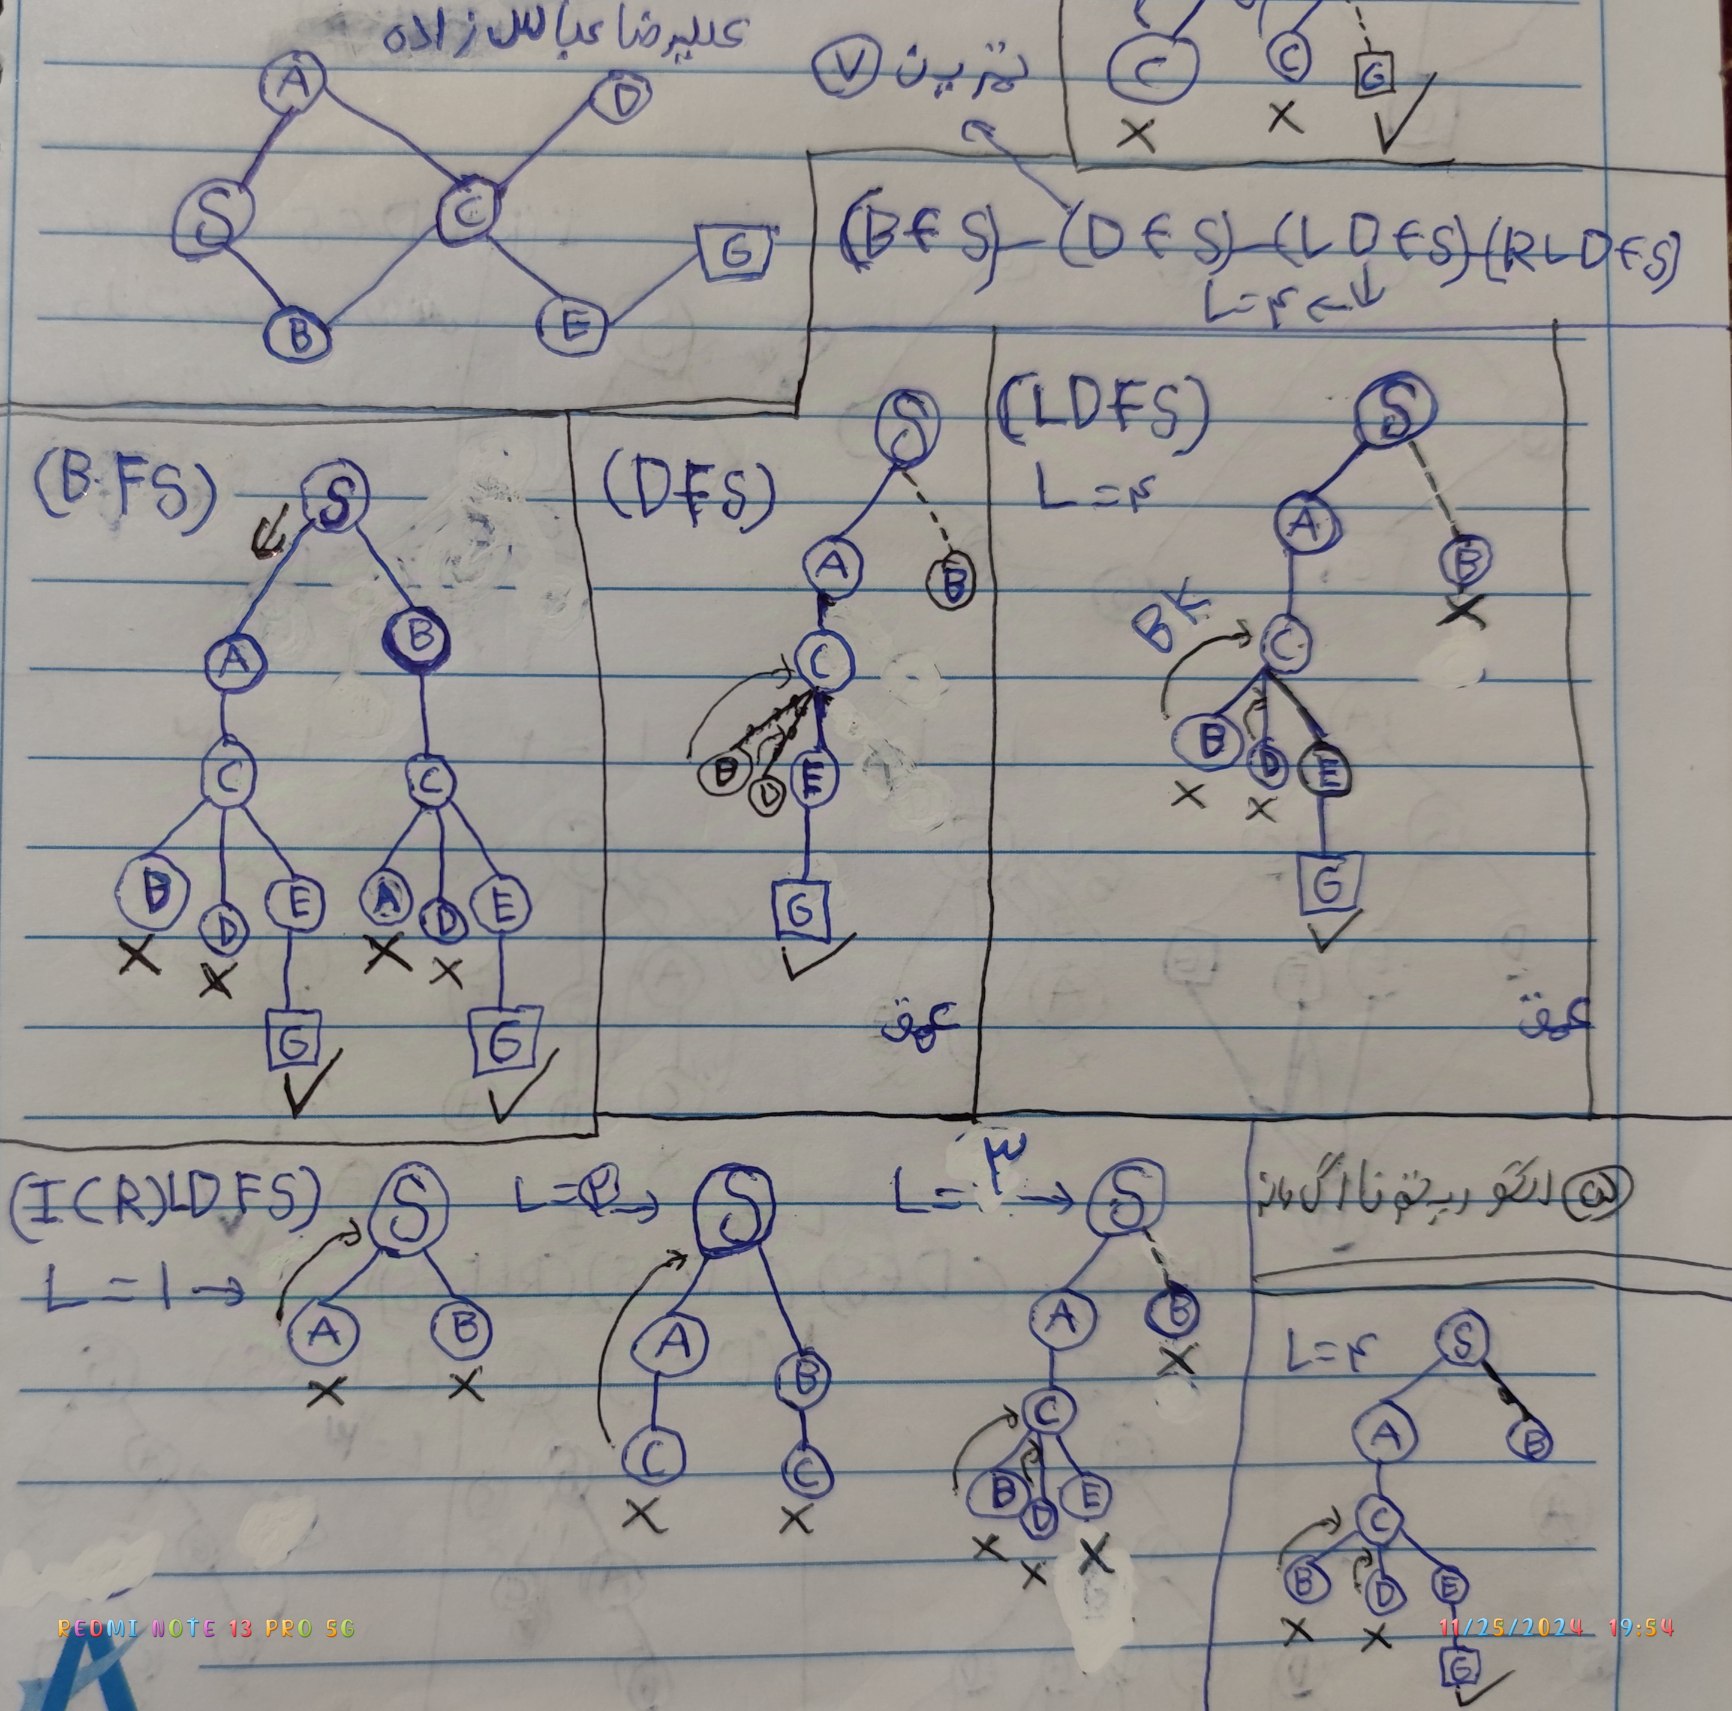 علیرضا عباس زاده
تمرین ۷
C C G
A D
S C G
B E
(BFS) - (DFS) - (LDFS) (RLDFS)
L=۴
(BFS)
S
A B
C C
B D E A D E
G G
(DFS)
S
A B
C
B D E
G
عمق
(LDFS)
L=۴
S
A B
BK C
B D E
G
عمق
(I(R)LDFS)
L=1 → S
A B
L=۲ → S
A B
C C
L=۳ → S
A B
C
B D E
۵
L=۴ S
A B
C
B D E
G
REDMI NOTE 13 PRO 5G
11/25/2024 19:54